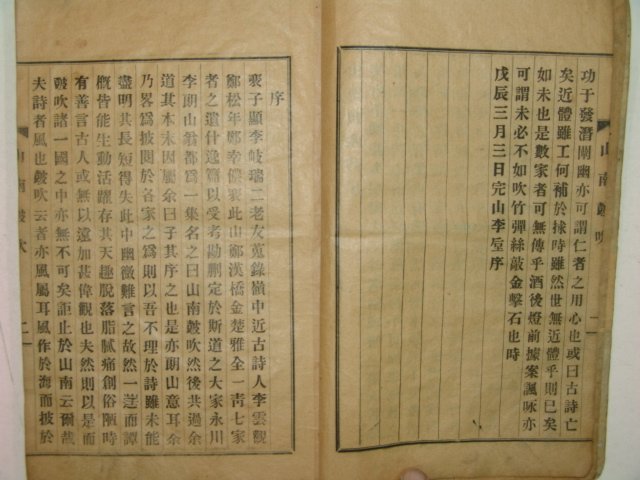 功于發潛闡幽亦可謂仁者之用心也或曰古詩亡
矣近體雖工何補於捄時雖然世無近體乎則已矣
如未也是數家者可無傳乎酒後燈前據案諷咏亦
可謂未必不如吹竹彈絲敲金擊石也時
戊辰三月三日完山李垕序
山南皷吹 一
序
裵子顯李岐瑞二老友蒐錄嶺中近古詩人李雲觀
鄭松年鄭奉儂裵此山鄭漢橋金楚雅全一靑七家
者之遺什逸篇以受考勘刪定於斯道之大家永川
李朗山翁都爲一集名之曰山南皷吹然後共過余
道其本末因屬余曰子其序之也是亦朗山意耳余
乃畧爲披閱於各家之爲則以吾不理於詩雖未能
盡明其長短得失此中幽微難言之故然一而譚
概皆能生動活躍存其天趣脫落脂膩痛創俗陋時
有善言古人或無以遠加甚偉觀也夫然則以是而
皷吹諸一國之中亦無不可矣詎止於山南云爾哉
夫詩者風也皷吹云者亦風屬耳風作於海而披於
山南皷吹 二